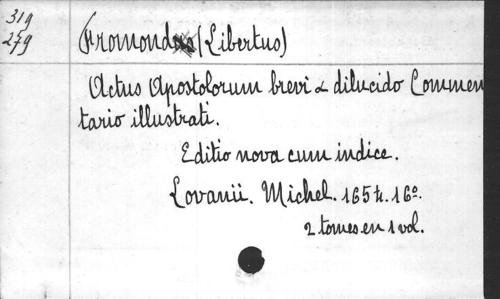 319
279
Fromondus (Libertus)
Actus Apostolorum brevi & dilucido Commen
tario illustrati.
Editio nova cum indice.
Lovanii. Michel. 1654. 16º.
2 tomes en 1 vol.